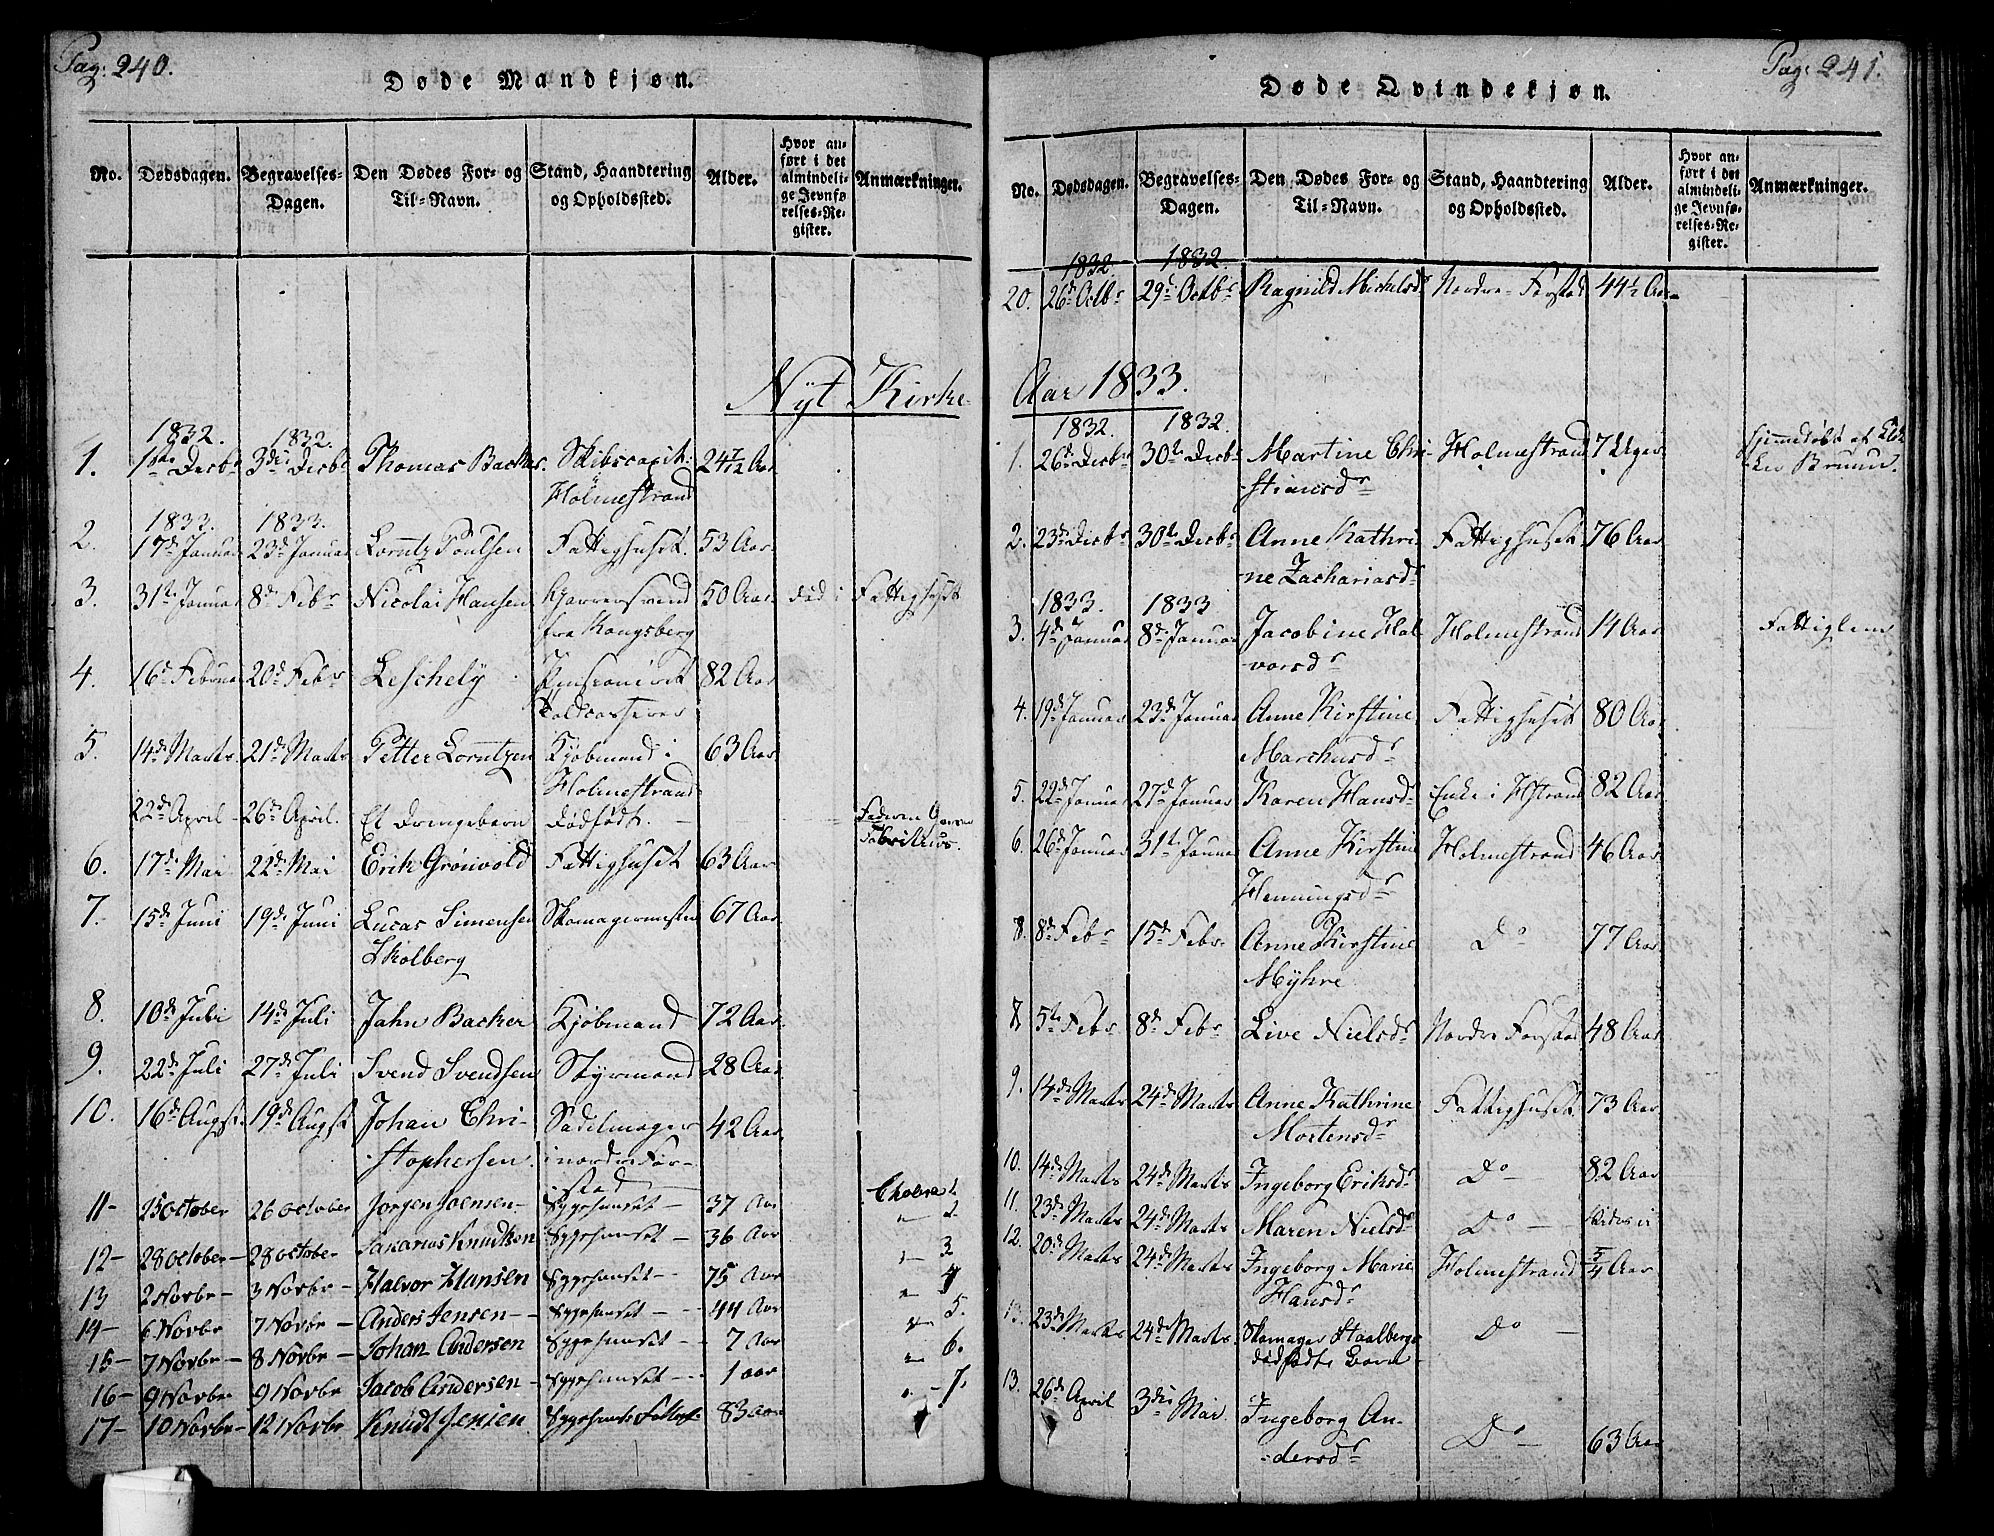 Pag: 240.
Døde Mandkjøn.
No. Dødsdagen. Begravelses-Dagen. Den Dødes For- og Til-Navn. Stand, Haandtering og Opholdssted. Alder. Hvor anført i det almindelige Jevnførelses-Register. Anmærkninger.
Nyt Kirke-
1832. 1832.
1. 1ste Decbr 3die Decbr Thomas Backer Skibscapit: 24 7/12 Aar
Holmestrand
1833. 1833.
2. 17de Januar 23de Januar Lorentz Poulsen Fattighuset. 53 Aar
3. 31te Januar 8de Febr Nicolai Hansen 50 Aar død i Fattighuset
fra Kongsberg
4. 16de Februar 20de Febr Leschely Pensioneret 82 Aar
Toldcasserer
5. 14de Marts 21de Marts Petter Lorentzen Kjøbmand i 63 Aar
Holmestrand
22de April 26de April. Et Drengebarn Dødfødt. Faderen
Fabritius.
6. 17de Mai 22de Mai Erik Grönvold Fattighuset 63 Aar
7. 15de Juni 19de Juni Lucas Simensen Skomagermester 67 Aar
Skolberg
8. 10de Juli 14de Juli Jahn Backer Kjøbmand 72 Aar
9. 22de Juli 27de Juli Svend Svendsen Styrmand 28 Aar
10. 16de Augst. 19de Augst Johan Chri- Sadelmager 42 Aar
-stophersen. i nordre For-
stad
11- 25 october 26 october Jørgen Joensen- Sygehuuset- 37 Aar Cholera 1.
12- 28 october- 28 october Sakarias Knudsen Sygehuuset- 36 Aar -"- 2
13 2 Novbr- 3 Novbr- Halvor Hansen Sygehuuset- 75 Aar -"- 3
14- 6 Novbr 7 Novbr- Anders Jensen- Sygehuuset- 44 Aar -"- 4
15- 7 Novbr- 8 Novbr- Johan Andersen Sygehuuset- 7 Aar -"- 5.
16- 9 Novbr- 9 Novbr Jacob Andersen- Sygehuuset- 1 aar -"- 6.
17- 10 Novbr- 12 Novbr Knudt Jensen Sygehuuset 83 aar -"- 7.
Pag: 241.
Døde Qvindekjøn.
No. Dødsdagen. Begravelses-Dagen. Den Dødes For- og Til-Navn. Stand, Haandtering og Opholdssted. Alder. Hvor anført i det almindelige Jevnførelses-Register. Anmærkninger.
1832. 1832.
20. 26de Octbr 29de Octbr Ragnild Michelsdr Nordre Forstad 44 1/2 Aar
Aar 1833.
1832. 1832.
1. 26de Decbr 30te Decbr Martine Chri- Holmestrand 7 Uger Hjemmedøbt af
-stiansdr Bruun.
2. 23de Decbr 30te Decbr Anne Kathri Fattighuset 76 Aar
-ne Zachariasdr
1833. 1833
3. 4de Januar 8de Januar Jacobine Hal Holmestrand 14 Aar Fattiglem
vorsdr
4. 19de Januar 23de Januar Anne Kirstine Fattighuset 80 Aar
Marchusdr
5. 22de Januar 27de Januar Karen Hansdr Enke i Hstrand 82 Aar
6. 26de Januar 31te Januar Anne Kirstine Holmestrand 46 Aar
Henningsdr
8. 8de Febr 15de Febr. Anne Kirstine Do 77 Aar
Myhre
7. 5te Febr. 8de Febr Live Nielsdr Nordre Forstad 48 Aar
9. 14de Marts 24de Marts Anne Kathrine Fattighuset 73 Aar
Mortensdr
10. 14de Marts 24de Marts Ingeborg Eriksdr Do - 82 Aar
11. 23de Marts 24de Marts Maren Nielsdr Do -
12. 20de Marts 24de Marts Ingeborg Marie Holmestrand 3/4 Aar
Hansdr
13. 23de Marts 24de Marts Skomager Staalbergs Do -
dødfødte Barn
13. 26de April 3die Mai Ingeborg An- Do - 63 Aar
-dersdr